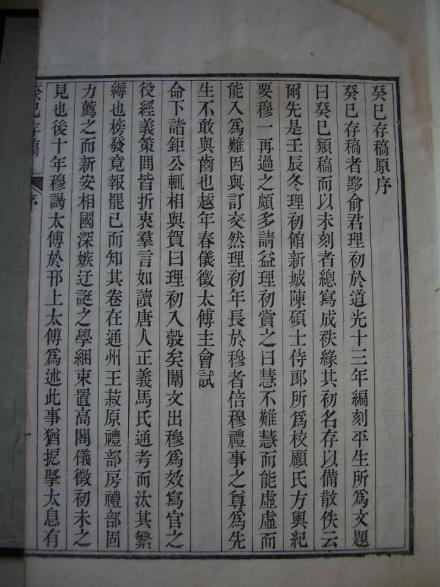 癸巳存稿原序
癸巳存稿者黟俞君理初於道光十三年編刻平生所爲文題
曰癸巳類稿而以未刻者總寫成秩緣其初名存以備散佚云
爾先是壬辰冬理初館新城陳碩士侍郎所爲校顧氏方輿紀
要穆一再過之頗多請益理初賞之曰慧不難慧而能虛虛而
能入爲難因與訂交然理初年長於穆者倍穆禮事之尊爲先
生不敢與齒也越年春儀徵太傅主會試
命下諸鉅公輒相與賀曰理初入彀矣闈文出穆爲效寫官之
役經義策問皆折衷羣言如讀唐人正義馬氏通考而汰其繁
縟也榜發竟報罷已而知其卷在通州王菽原禮部房禮部固
力薦之而新安相國深嫉迂誕之學綑束置高閣儀徵初未之
見也後十年穆謁太傅於邗上太傅爲述此事猶扼掔太息有
癸巳存稿
序